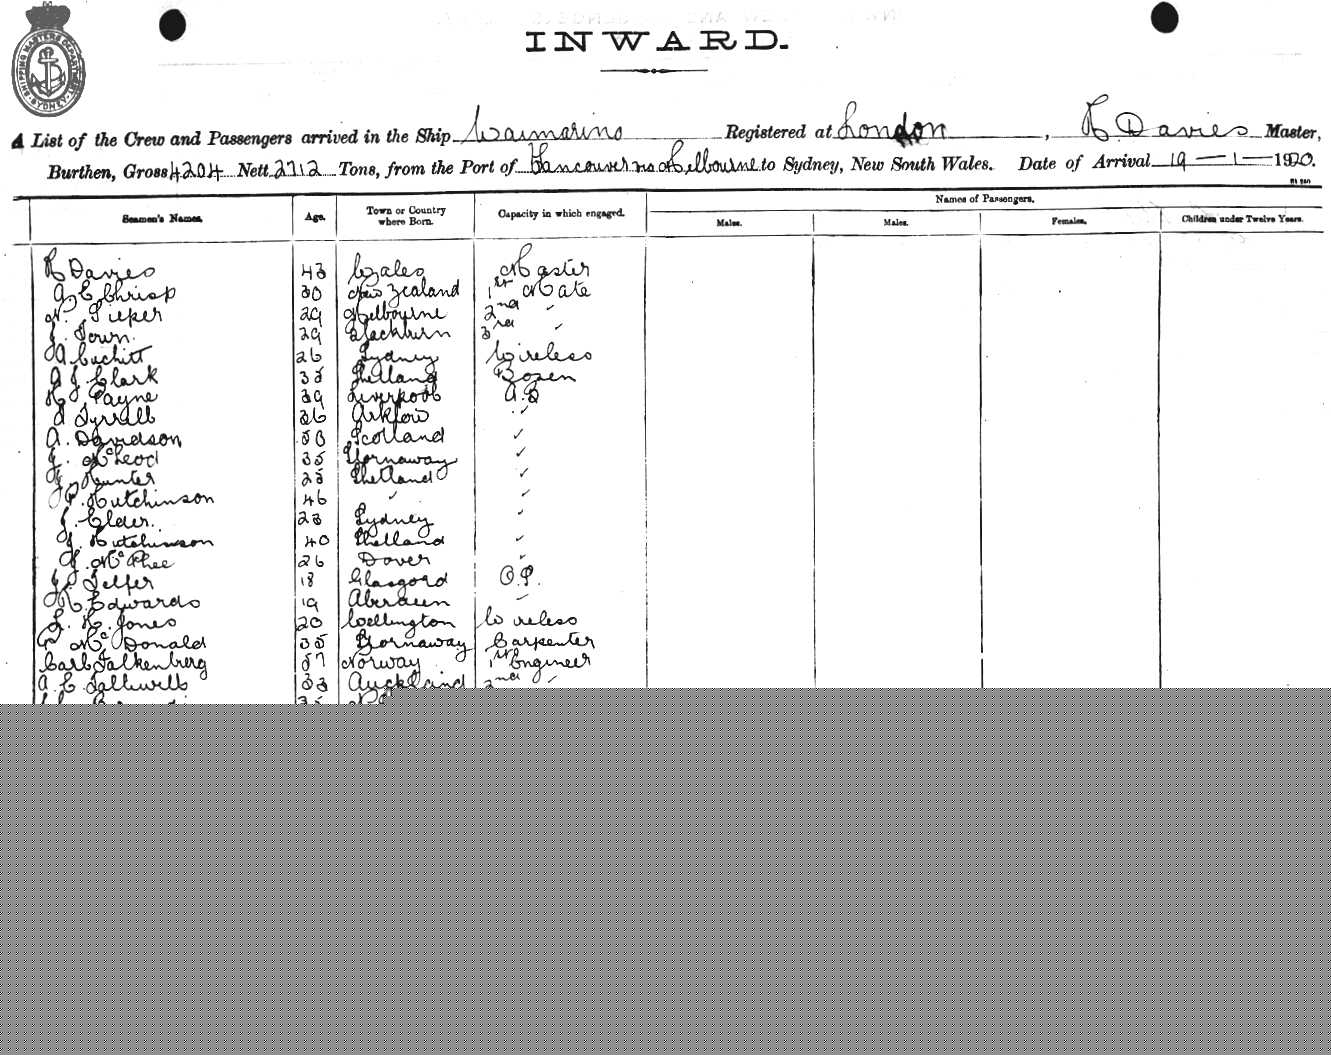 SHIPPING MASTERS DEPARTMENT SYDNEY
INWARD.
A List of the Crew and Passengers arrived in the Ship Waimarino Registered at London, R Davies Master,
Burthen, Gross 4204 Nett 2712 Tons, from the Port of Vancouver via Melbourne to Sydney, New South Wales. Date of Arrival 19 — 1 — 1920.
Seamen's Names. Age. Town or Country where Born. Capacity in which engaged. Names of Passengers.
Males. Males. Females. Children under Twelve Years.
R Davies 43 Wales Master
A E Chrisp 30 New Zealand 1st Mate
N. Pieper 29 Melbourne 2nd "
J. Town. 29 Blackburn 3rd "
A 26 Sydney Wireless
A J. Clark 35 Shetland Bosen
R Payne 39 Liverpool A.B
Tyrrell 36 Arklow "
A. Davidson 58 Scotland "
J. McLeod 35 Stornaway "
J. Hunter 25 Shetland "
P. Hutchinson 46 " "
J. Elder. 23 Sydney "
J. Hutchinson 40 Shetland "
J. McPhee 26 Dover "
J. Telfer 18 Glasgow O.S.
R. Edwards 19 Aberdeen "
L. R. Jones 20 Wellington Wireless
McDonald 35 Stornaway Carpenter
Carl Falkenberg 57 Norway 1st Engineer
A. E. 33 Auckland 2nd "